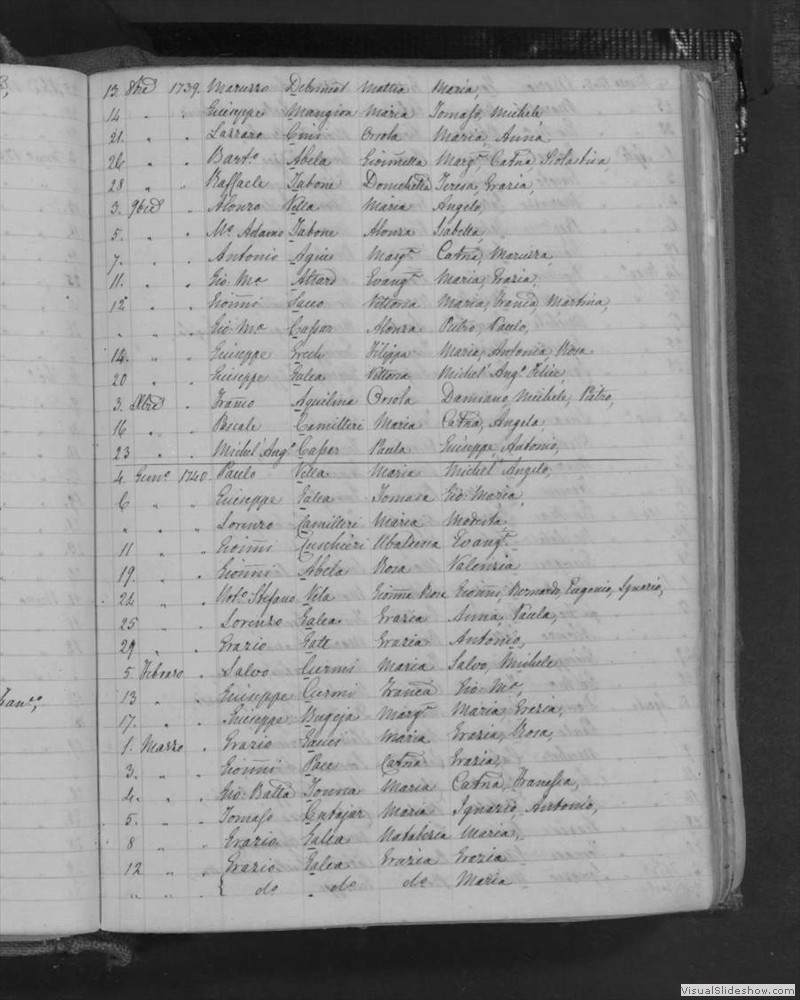 13. 8bre 1739. Maruzzo Debrincat Mattia Maria,
14 " " Giuseppe Mangion Maria Tomaso, Michele,
21. " " Lazzaro Cini Orsola Maria, Anna,
26 " " Bart.o Abela Gionnella Marg.ta Catna,
28 " " Raffaele Tabone Domenica Teresa, Grazia,
3. 9bre " Alonzo Vella Maria Angelo,
5. " " Mo. Adamo Tabone Alonza Isabella,
7. " " Antonio Agius Marg.ta Catna, Maruzza,
11. " " Gio. Ma. Attard Evang.ta Maria, Grazia,
12 " " Gioanni Sacco Vittoria Maria, Franca, Martina,
" " " Gio. Ma. Caspar Alonza Pietro, Paulo,
14. " " Giuseppe Grech Filippa Maria, Antonia, Rosa
20 " " Giuseppe Galea Vittoria Michel' Ang.o Felice,
3. Xbre " Franco Aquilina Orsola Damiano, Michele, Pietro,
16 " " Pascale Camilleri Maria Catna, Angelo,
23 " " Michel' Ang.o Caspar Paula Giuseppe, Antonio,
4. Genn.o 1740 Paulo Vella Maria Michel' Angelo,
6 " " Giuseppe Galea Tomasa Gio: Maria,
" " " Lorenzo Camilleri Maria Modesta,
11 " " Gioanni Cuschieri Ubaldesca Evang.ta
19. " " Gionni Abela Rosa Valenzia
24 " " Not.o Stefano Vela Gionna Rosa Gionni, Bernardo, Eugenio, Ignazio,
25 " " Lorenzo Galea Grazia Anna, Paula,
29 " " Grazio Gatt Grazia Antonio,
5. Febraro " Salvo Curmi Maria Salvo, Michele
13 " " Giuseppe Curmi Franca Gio. Ma.,
17. " " Giuseppe Bugeja Marg.ta Maria, Grezia,
1. Marzo " Grazio Gauci Maria Grazia, Rosa,
3. " " Gionni Pace Catna Grazia,
4. " " Gio. Batta Tonna Maria Catna,
5. " " Tomaso Cutajar Maria Ignazio, Antonio,
8 " " Grazio Galea Natalizia Maria,
12 " " Grazio Galea Grazia Grazia
" " " { do. " do. do. Maria
Fran.co,
VisualSlideshow.com